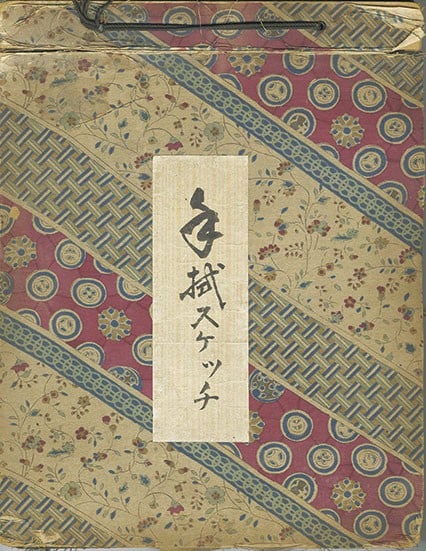 手拭スケッチ